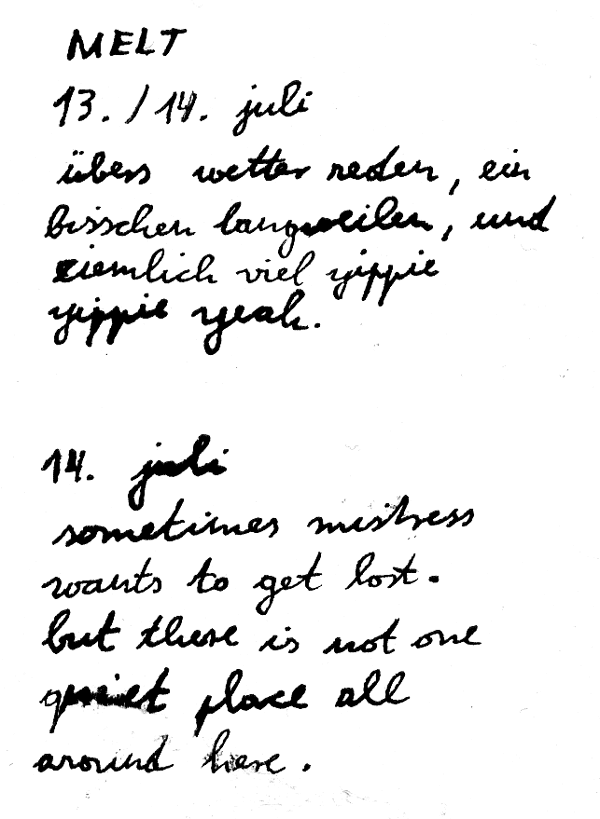 MELT
13. / 14. juli
übers wetter reden, ein
bisschen langweilen, und
ziemlich viel yippie
yippie yeah.
14. juli
sometimes mistress
wants to get lost.
but there is not one
quiet place all
around here.